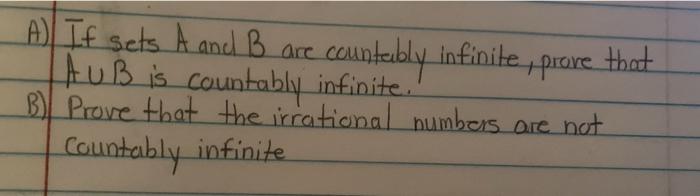 A) If sets A and B are countably infinite, prove that
A ∪ B is countably infinite.
B) Prove that the irrational numbers are not
Countably infinite